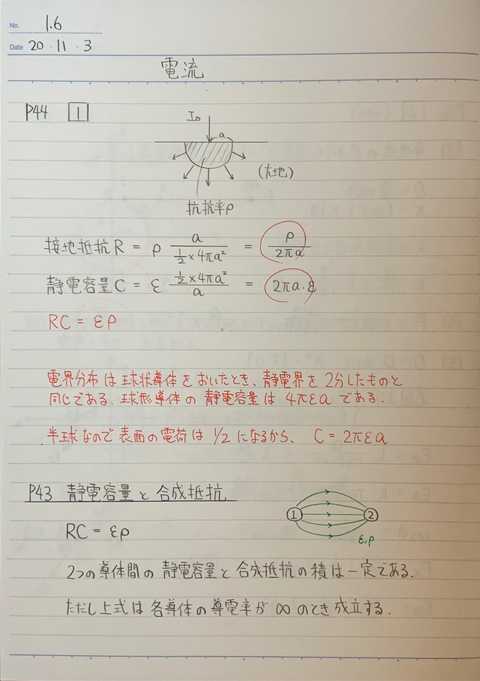 No. 1.6
Date 20・11・3
電流
P44 1
I₀
a
(大地)
抗抗率ρ
接地抵抗R = ρ a / (1/2 × 4πa²) = ρ / 2πa
静電容量C = ε (1/2 × 4πa²) / a = 2πa・ε
RC = ερ
電界分布は球状導体をおいたとき、静電界を2分したものと
同じである。球形導体の静電容量は 4πεa である.
半球なので表面の電荷は 1/2 になるから、 C = 2πεa
P43 静電容量と合成抵抗
RC = ερ
1 2
ε,ρ
2つの導体間の静電容量と合成抵抗の積は一定である.
ただし上式は各導体の導電率が∞のとき成立する.